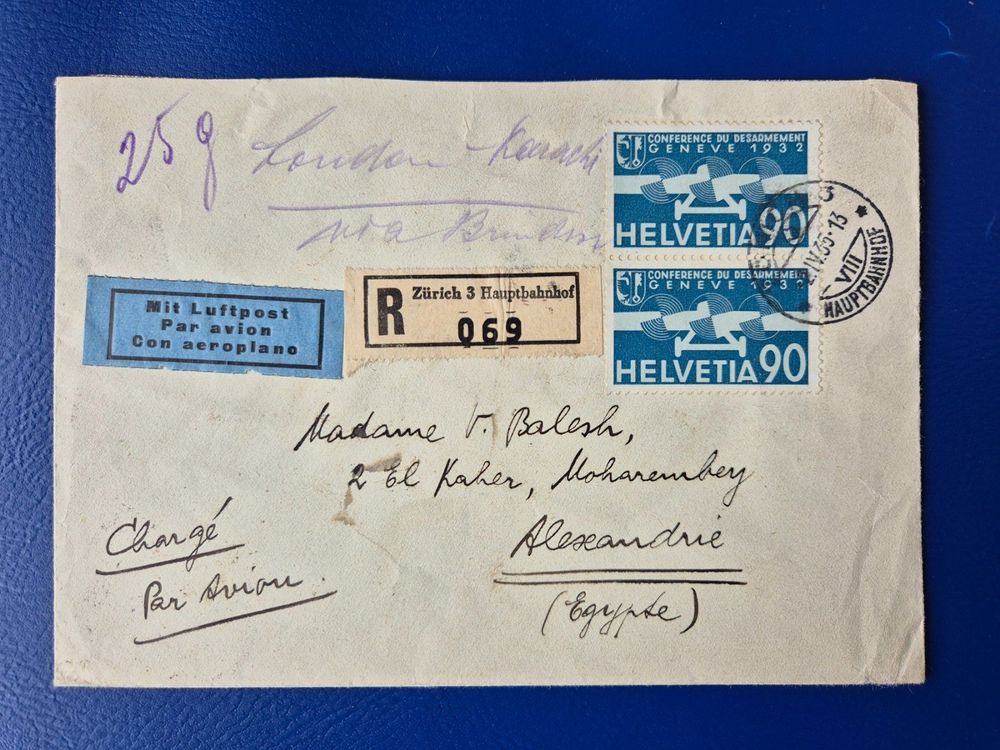 25 g London Karachi
via Brindisi
CONFERENCE DU DESARMEMENT
GENEVE 1932
HELVETIA 90
CONFERENCE DU DESARMEMENT
GENEVE 1932
HELVETIA 90
3
IV.35-13
VIII
HAUPTBAHNHOF
Mit Luftpost
Par avion
Con aeroplano
R Zürich 3 Hauptbahnhof
069
Madame V. Balesh,
2 El Kaher, Moharembey
Alexandrie
(Egypte)
Chargé
Par Avion